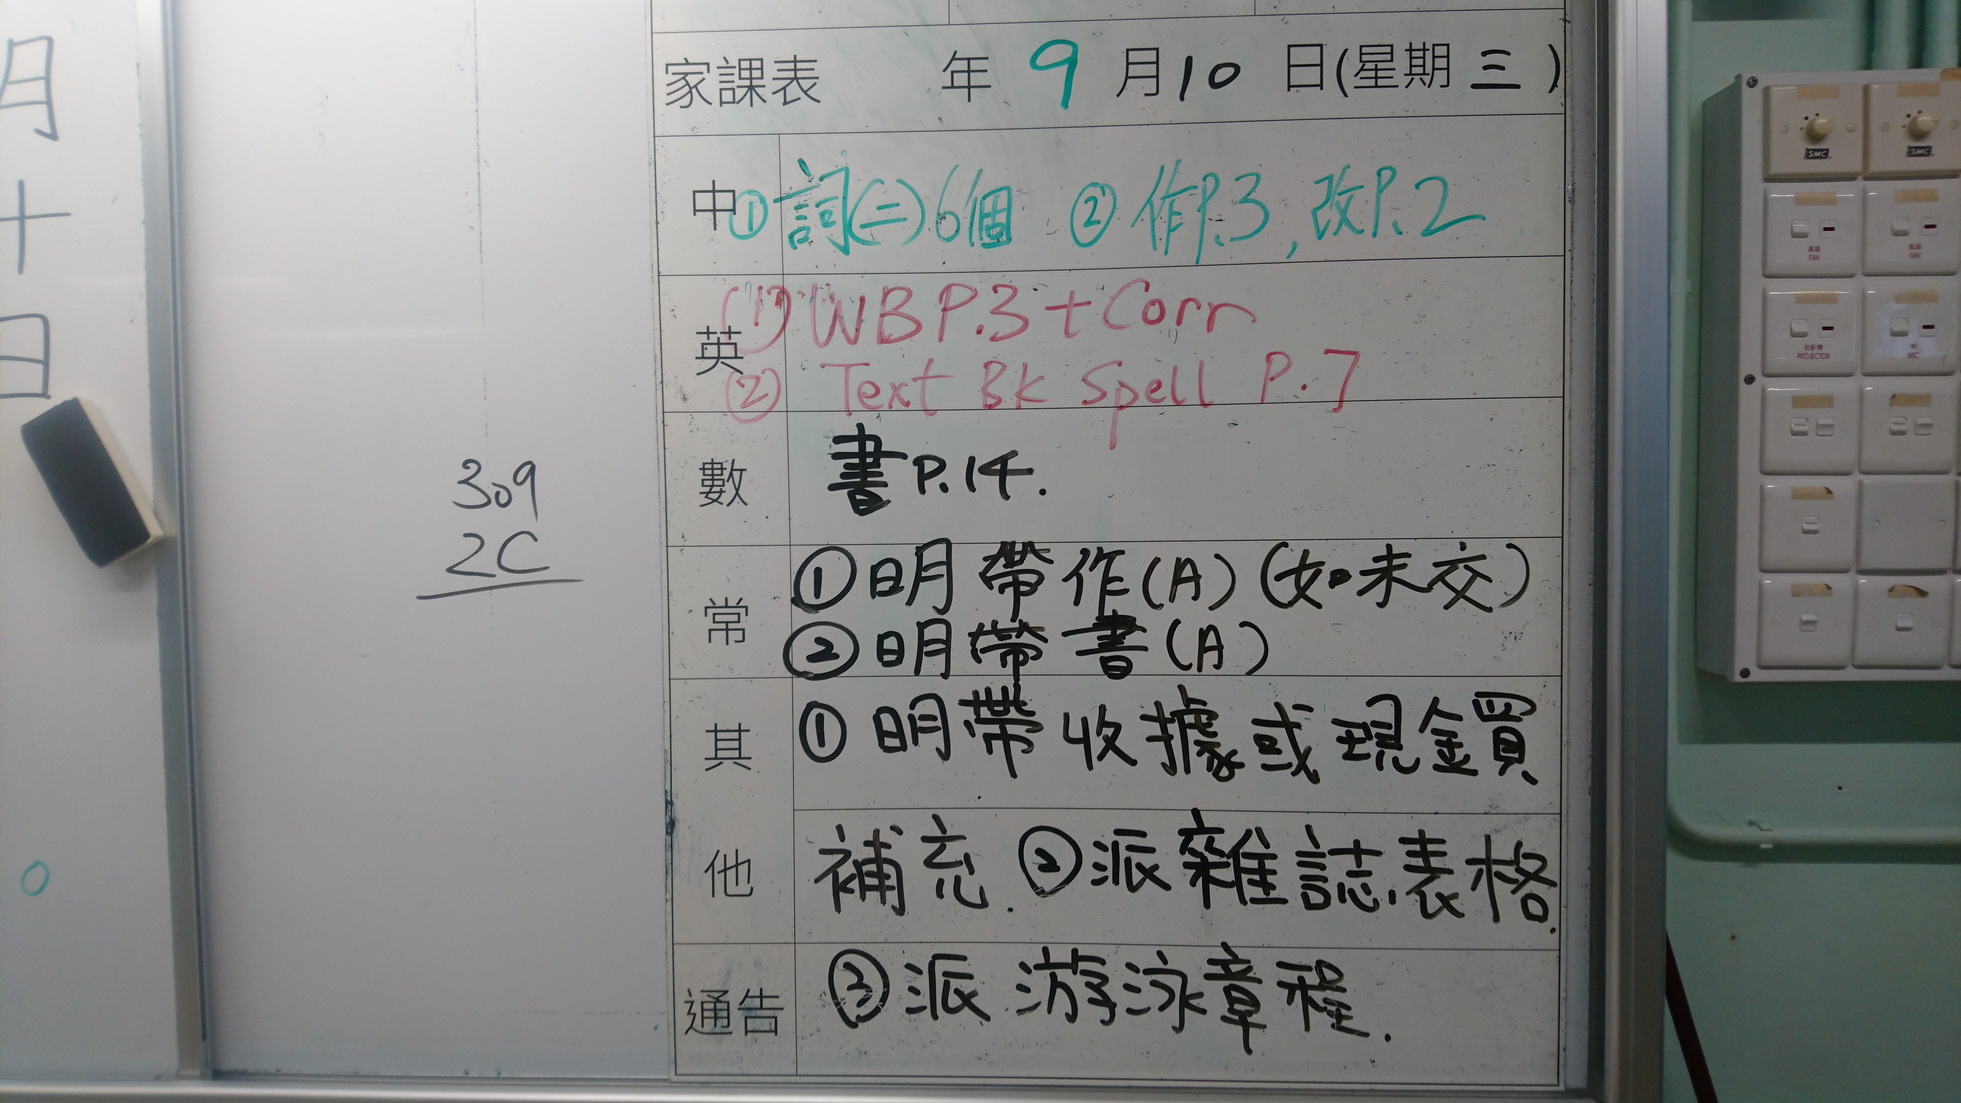 月
十
日
309
2C
家課表 年 9 月 10 日(星期 三 )
中 ① 詞(二)6個 ② 作P.3, 改P.2
英 (1) WB P.3 + Corr
(2) Text Bk Spell P.7
數 書P.14.
常 ① 明帶作(A) (如未交)
② 明帶書(A)
其 ① 明帶收據或現金買
他 補充. ②派雜誌表格.
通告 ③派游泳章程.
SMC SMC
風扇 FAN
風扇 FAN
投影機 PROJECTOR
咪 MIC